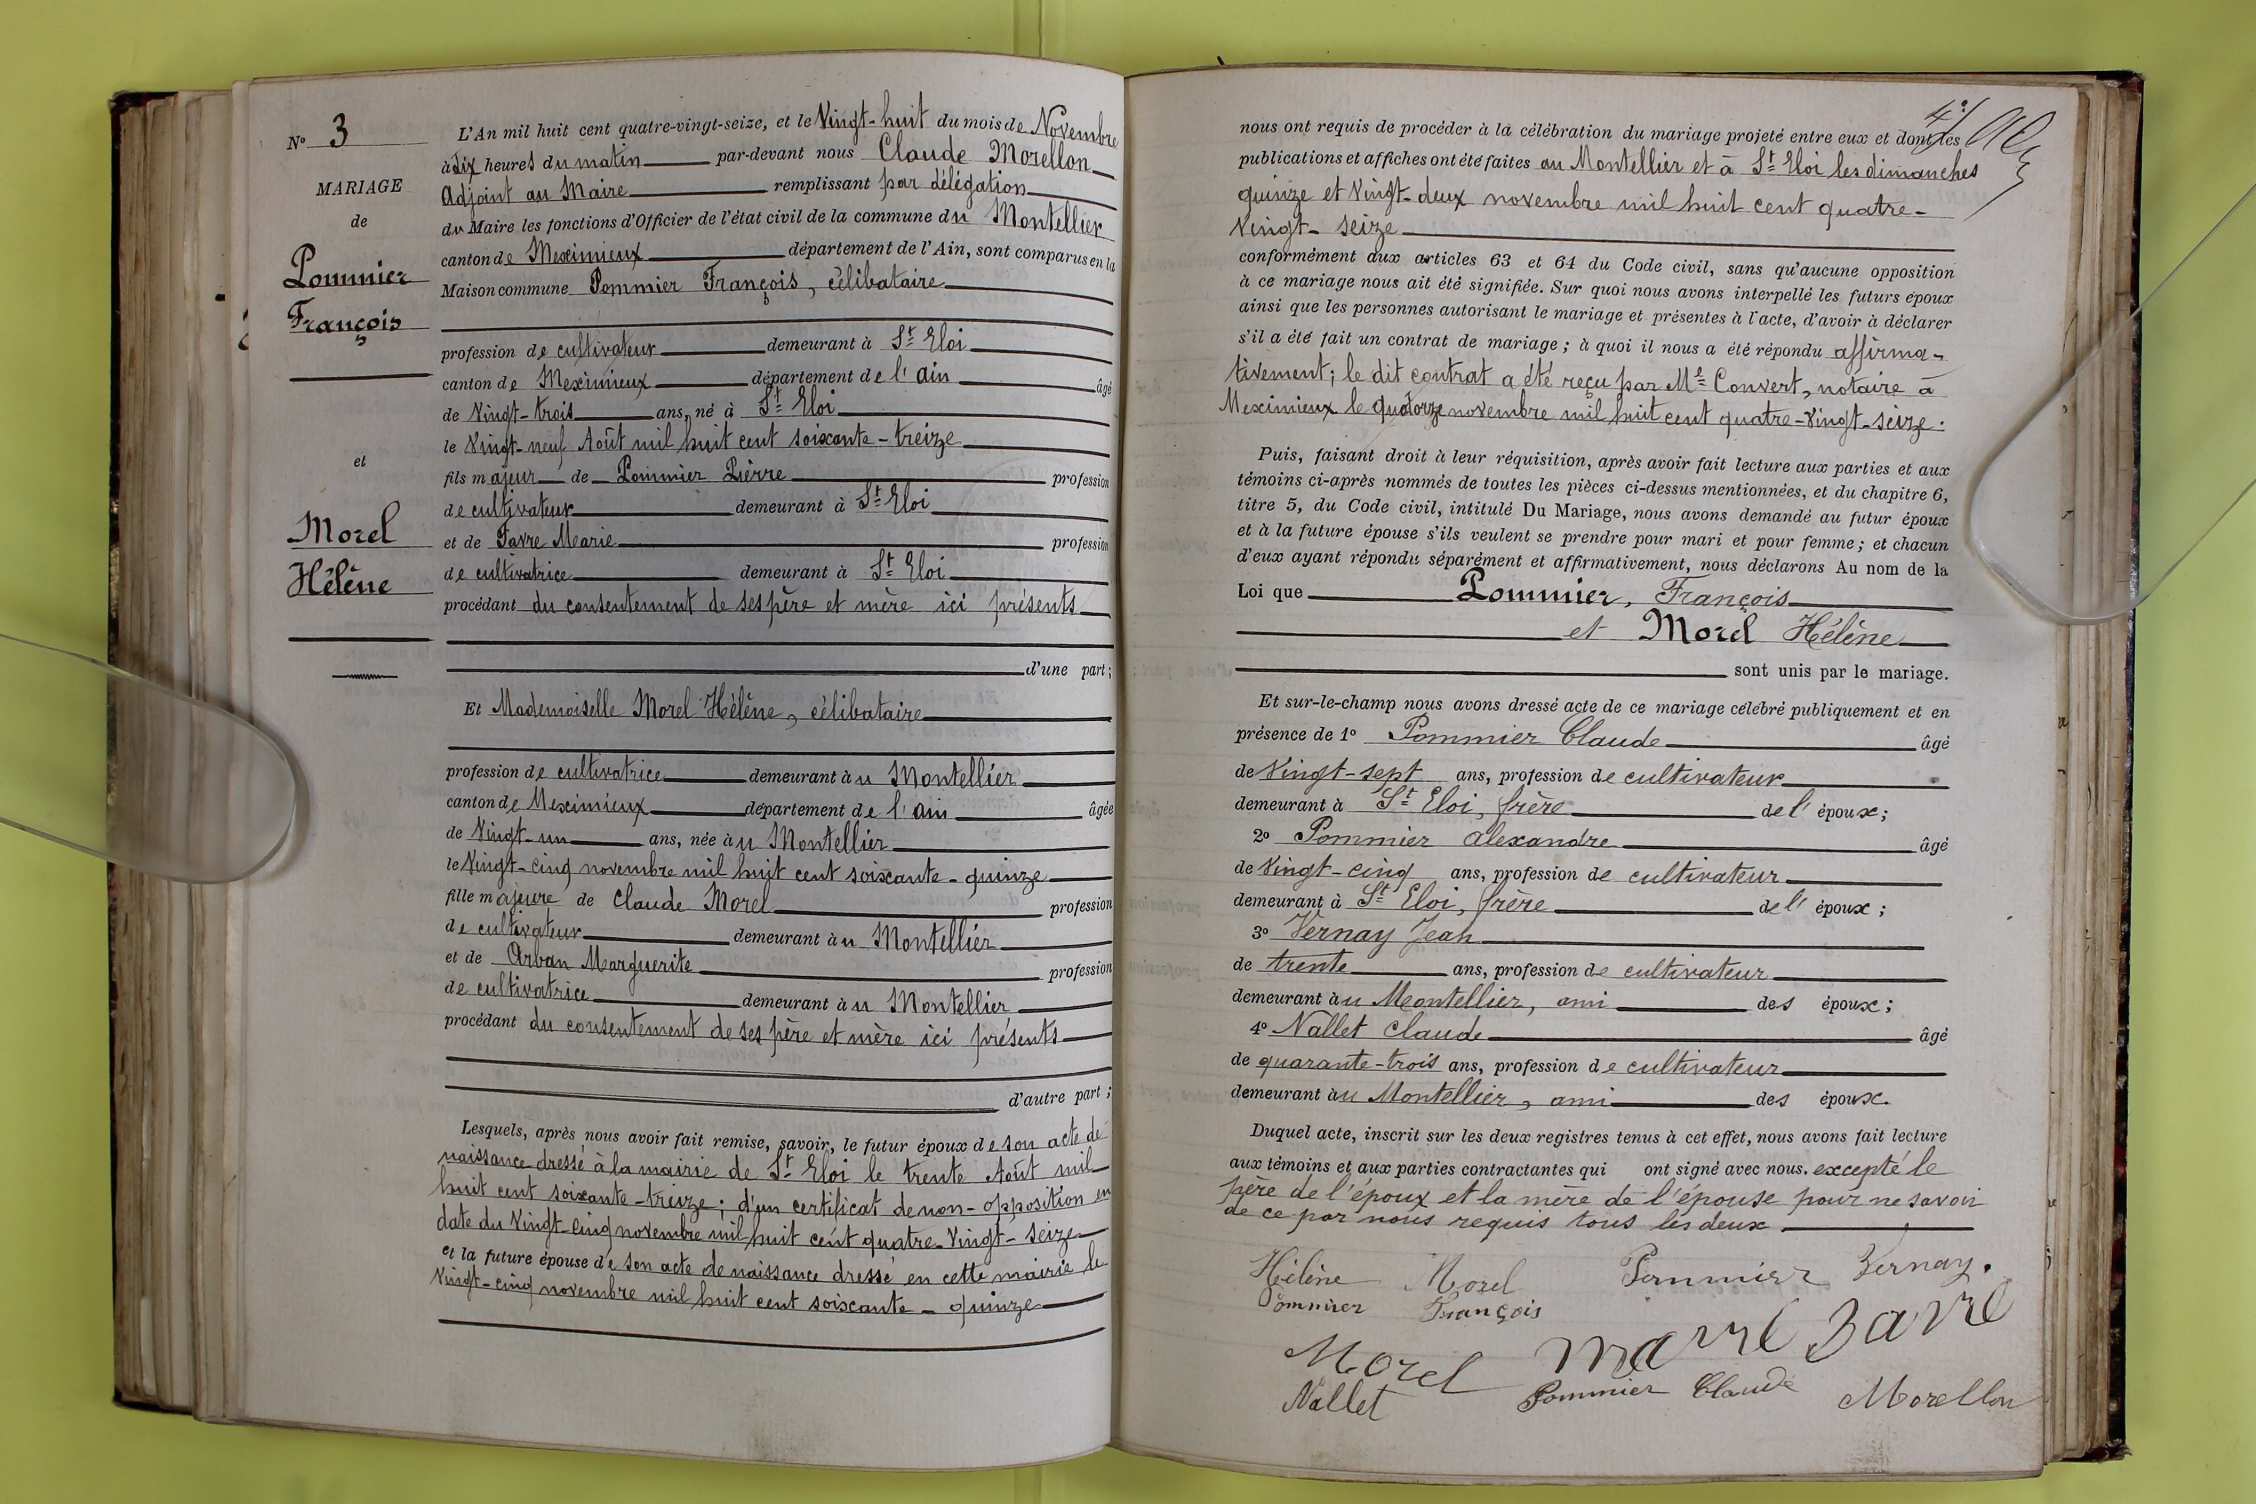 Nº 3
MARIAGE
de
Pommier
François
et
Morel
Hélène
L'An mil huit cent quatre-vingt-seize, et le Vingt-huit du mois de Novembre
à dix heures du matin par-devant nous Claude Morellon
Adjoint au Maire remplissant par délégation
du Maire les fonctions d'Officier de l'état civil de la commune du Montellier
canton de Meximieux département de l'Ain, sont comparus en la
Maison commune Pommier François, célibataire
profession de cultivateur demeurant à St Eloi
canton de Meximieux département de l'ain âgé
de Vingt-trois ans, né à St Eloi
le Vingt-neuf Août mil huit cent soixante-treize
fils majeur de Pommier Pierre profession
de cultivateur demeurant à St Eloi
et de Favre Marie profession
de cultivatrice demeurant à St Eloi
procédant du consentement de ses père et mère ici présents
d'une part;
Et Mademoiselle Morel Hélène, célibataire
profession de cultivatrice demeurant au Montellier
canton de Meximieux département de l'ain âgée
de Vingt-un ans, née au Montellier
le Vingt-cinq novembre mil huit cent soixante-quinze
fille majeure de Claude Morel profession
de cultivateur demeurant au Montellier
et de Arban Marguerite profession
de cultivatrice demeurant au Montellier
procédant du consentement de ses père et mère ici présents
d'autre part;
Lesquels, après nous avoir fait remise, savoir, le futur époux de son acte de
naissance dressé à la mairie de St Eloi le trente Août mil
huit cent soixante-treize; d'un certificat de non-opposition en
date du Vingt-cinq novembre mil huit cent quatre-Vingt-seize
et la future épouse de son acte de naissance dressé en cette mairie le
Vingt-cinq novembre mil huit cent soixante-quinze
nous ont requis de procéder à la célébration du mariage projeté entre eux et dont les
publications et affiches ont été faites au Montellier et à St Eloi les dimanches
quinze et Vingt-deux novembre mil huit cent quatre-
Vingt-seize
conformément aux articles 63 et 64 du Code civil, sans qu'aucune opposition
à ce mariage nous ait été signifiée. Sur quoi nous avons interpellé les futurs époux
ainsi que les personnes autorisant le mariage et présentes à l'acte, d'avoir à déclarer
s'il a été fait un contrat de mariage; à quoi il nous a été répondu affirma-
tivement; le dit contrat a été reçu par Me Convert, notaire à
Meximieux le quatorze novembre mil huit cent quatre-Vingt-seize.
Puis, faisant droit à leur réquisition, après avoir fait lecture aux parties et aux
témoins ci-après nommés de toutes les pièces ci-dessus mentionnées, et du chapitre 6,
titre 5, du Code civil, intitulé Du Mariage, nous avons demandé au futur époux
et à la future épouse s'ils veulent se prendre pour mari et pour femme; et chacun
d'eux ayant répondu séparément et affirmativement, nous déclarons Au nom de la
Loi que Pommier, François
et Morel Hélène
sont unis par le mariage.
Et sur-le-champ nous avons dressé acte de ce mariage célébré publiquement et en
présence de 1º Pommier Claude âgé
de Vingt-sept ans, profession de cultivateur
demeurant à St Eloi, frère de l'époux;
2º Pommier Alexandre âgé
de Vingt-cinq ans, profession de cultivateur
demeurant à St Eloi, frère de l'époux;
3º Vernay Jean
de trente ans, profession de cultivateur
demeurant au Montellier, ami des époux;
4º Nallet Claude âgé
de quarante-trois ans, profession de cultivateur
demeurant au Montellier, ami des époux.
Duquel acte, inscrit sur les deux registres tenus à cet effet, nous avons fait lecture
aux témoins et aux parties contractantes qui ont signé avec nous. excepté le
père de l'époux et la mère de l'épouse pour ne savoir
de ce par nous requis tous les deux
Hélène Morel Pommier Vernay.
Pommier François
Morel
Nallet Pommier Claude Morellon